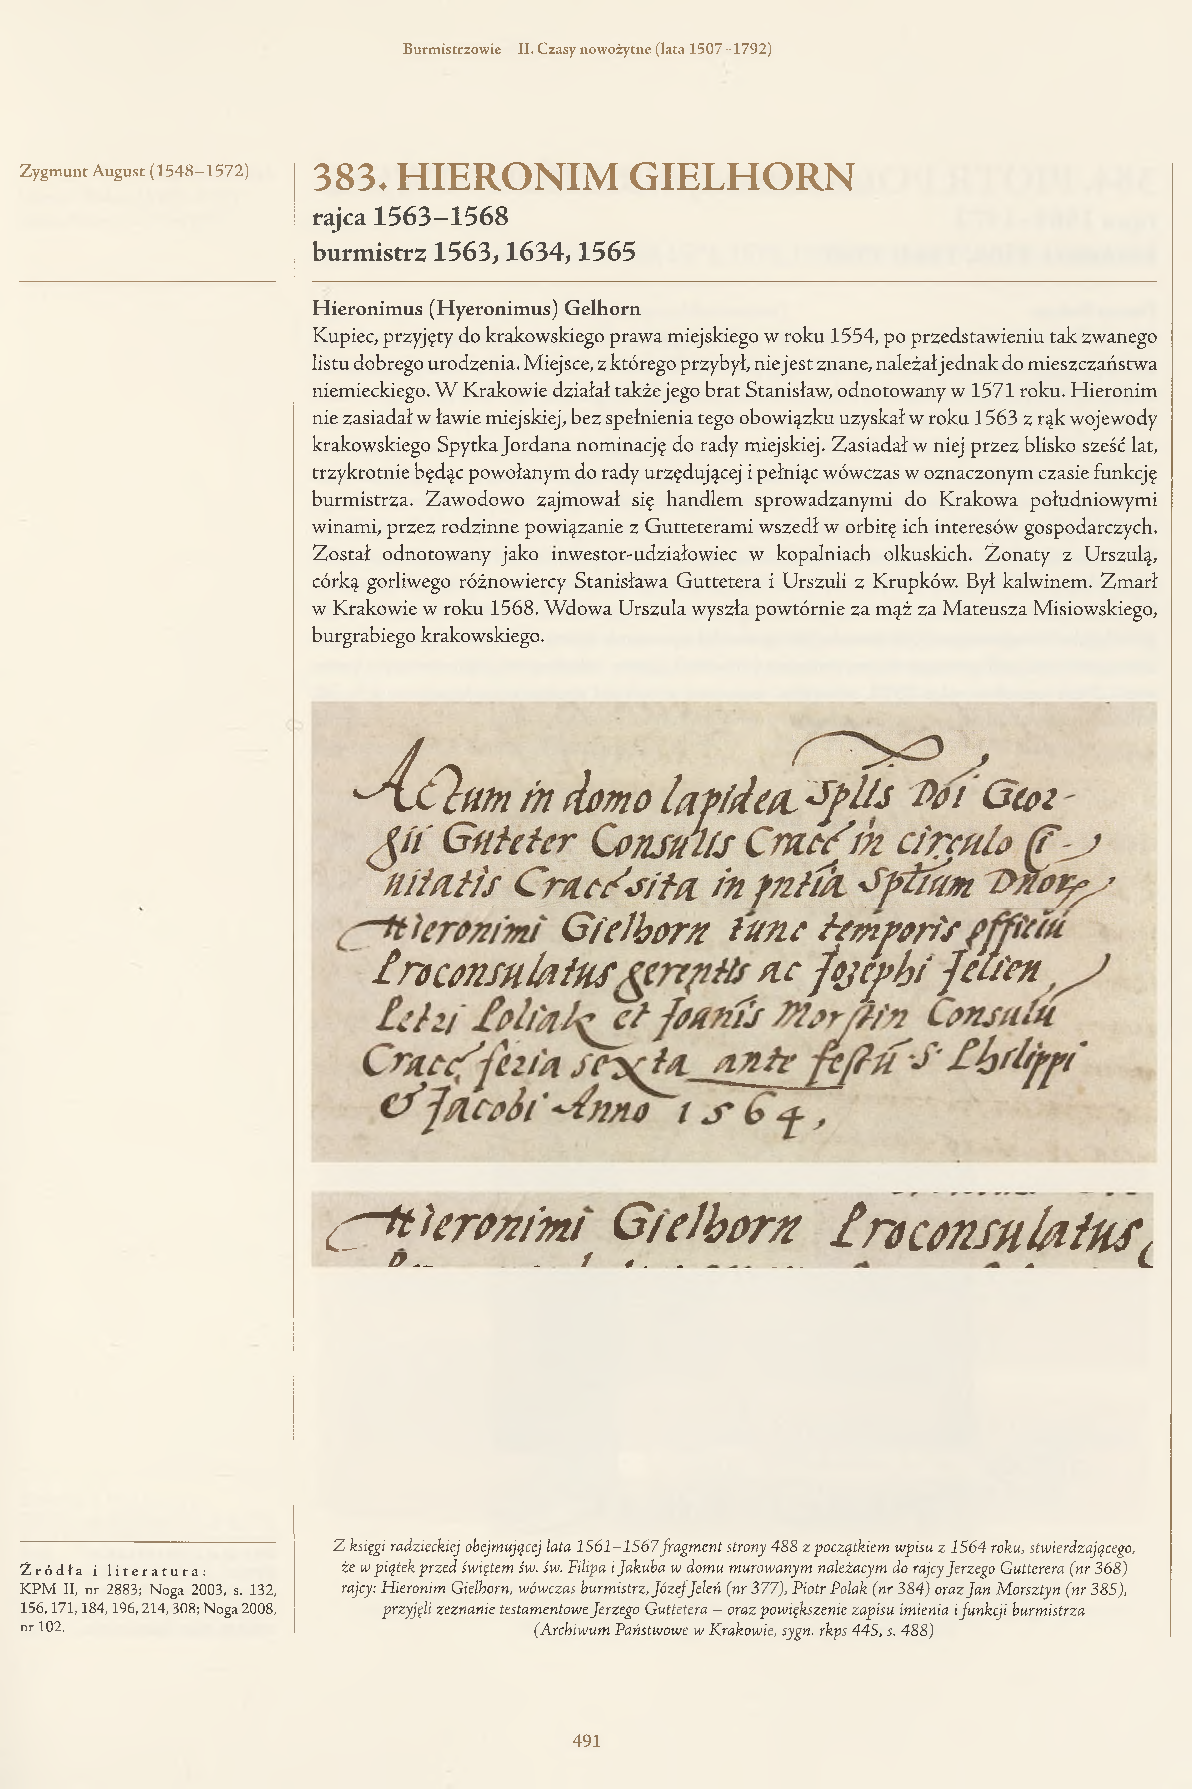 Burmistrzowie II. Czasy nowożytne (lata 1507–1792)
Zygmunt August (1548–1572)
383. HIERONIM GIELHORN
rajca 1563–1568
burmistrz 1563, 1634, 1565
Hieronimus (Hyeronimus) Gelhorn
Kupiec, przyjęty do krakowskiego prawa miejskiego w roku 1554, po przedstawieniu tak zwanego
listu dobrego urodzenia. Miejsce, z którego przybył, nie jest znane, należał jednak do mieszczaństwa
niemieckiego. W Krakowie działał także jego brat Stanisław, odnotowany w 1571 roku. Hieronim
nie zasiadał w ławie miejskiej, bez spełnienia tego obowiązku uzyskał w roku 1563 z rąk wojewody
krakowskiego Spytka Jordana nominację do rady miejskiej. Zasiadał w niej przez blisko sześć lat,
trzykrotnie będąc powołanym do rady urzędującej i pełniąc wówczas w oznaczonym czasie funkcję
burmistrza. Zawodowo zajmował się handlem sprowadzanymi do Krakowa południowymi
winami, przez rodzinne powiązanie z Gutteterami wszedł w orbitę ich interesów gospodarczych.
Został odnotowany jako inwestor-udziałowiec w kopalniach olkuskich. Żonaty z Urszulą,
córką gorliwego różnowiercy Stanisława Guttetera i Urszuli z Krupków. Był kalwinem. Zmarł
w Krakowie w roku 1568. Wdowa Urszula wyszła powtórnie za mąż za Mateusza Misiowskiego,
burgrabiego krakowskiego.
Actum in domo lapidea Splis Doi Geor-
gii Guteter Consulis Cracc in circulo Ci-
uitatis Cracc sita in pntia Sptium Dnor
Hieronimi Gielhorn tunc temporis officiu
Proconsulatus gerentis ac Jozephi Jelien
Petri Poliak et Joanis Morstin Consulu
Cracc feria sexta ante festu S. Philippi
& Jacobi Anno 1564,
Hieronimi Gielhorn Proconsulatus
Źródła i literatura:
KPM II, nr 2883; Noga 2003, s. 132,
156, 171, 184, 196, 214, 308; Noga 2008,
nr 102.
Z księgi radzieckiej obejmującej lata 1561–1567 fragment strony 488 z początkiem wpisu z 1564 roku, stwierdzającego,
że w piątek przed świętem św. św. Filipa i Jakuba w domu murowanym należacym do rajcy Jerzego Gutterera (nr 368)
rajcy: Hieronim Gielhorn, wówczas burmistrz, Józef Jeleń (nr 377), Piotr Polak (nr 384) oraz Jan Morsztyn (nr 385),
przyjęli zeznanie testamentowe Jerzego Guttetera – oraz powiększenie zapisu imienia i funkcji burmistrza
(Archiwum Państwowe w Krakowie, sygn. rkps 445, s. 488)
491